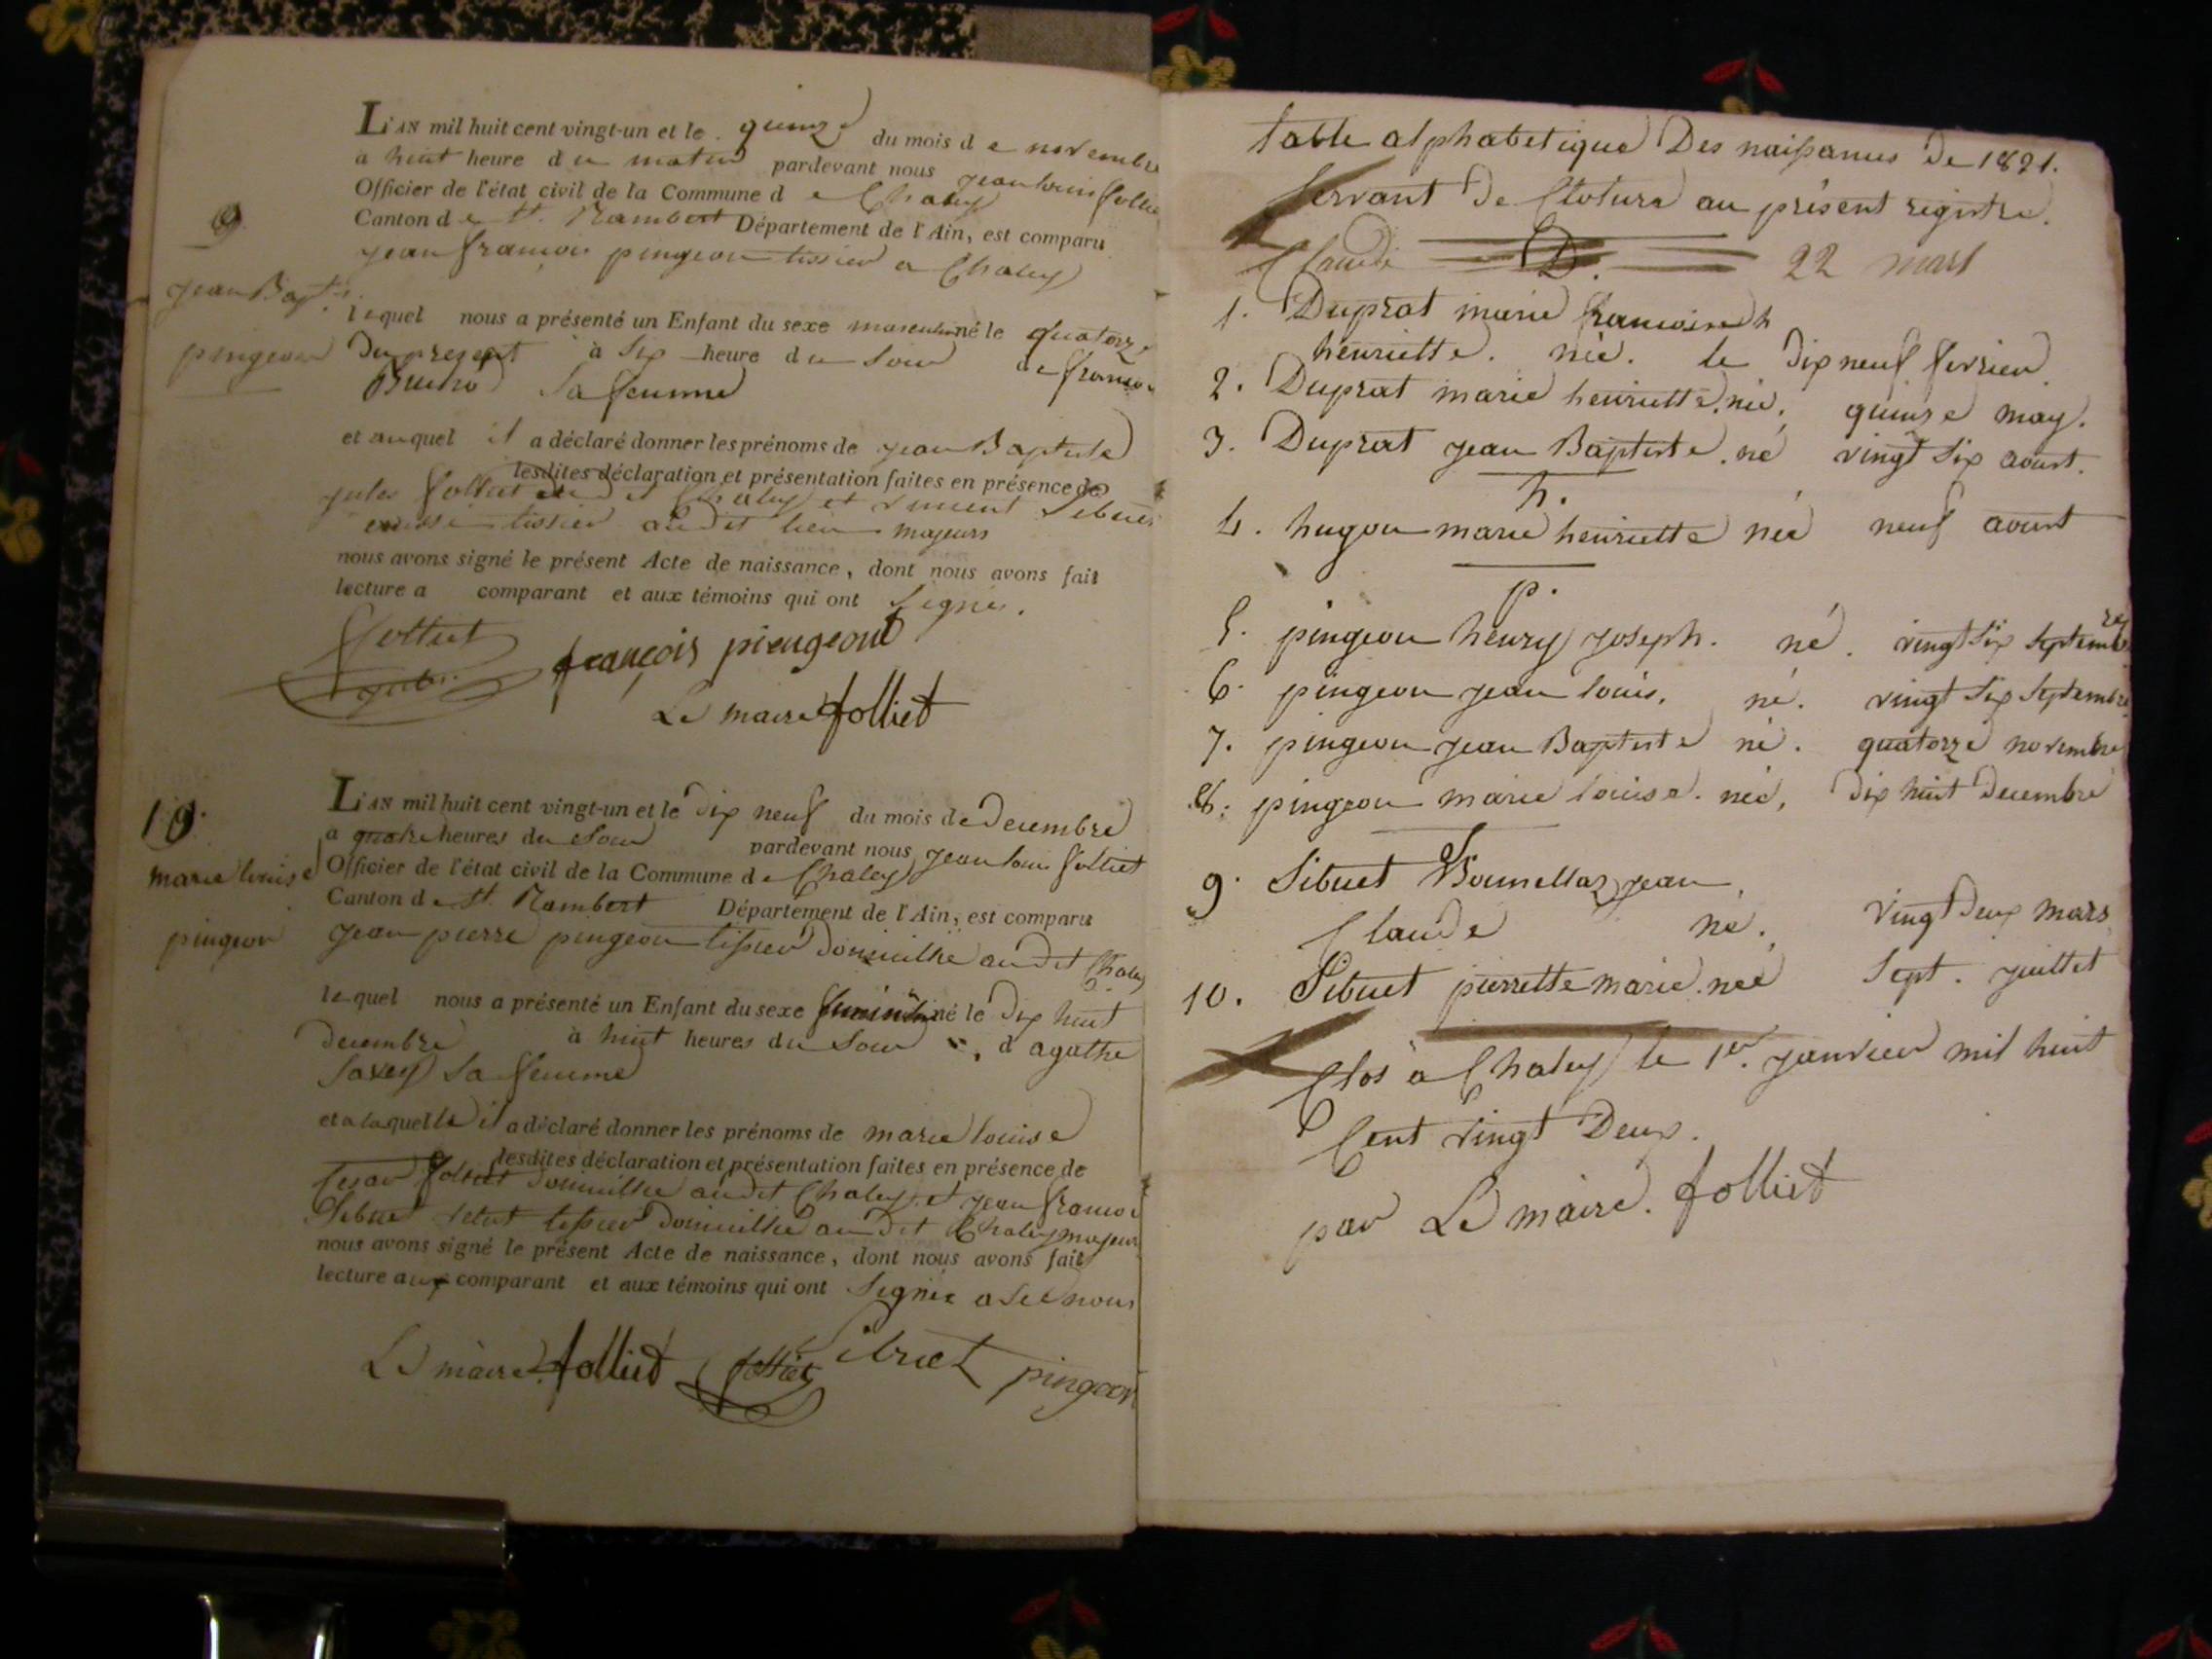 L'AN mil huit cent vingt-un et le quinze du mois de novembre
a huit heure du matin pardevant nous jean louis folliet
Officier de l'état civil de la Commune de Chaley
Canton de St. Rambert Département de l'Ain, est comparu
jean françois pingeon tissier a Chaley
9
jean Bapte.
pingeon
lequel nous a présenté un Enfant du sexe masculin né le quatorze
du present à six heure du soir de
sa femme
et auquel il a déclaré donner les prénoms de jean Baptiste
lesdites déclaration et présentation faites en présence de
jules folliet dudit Chaley et vincent Sibuet
tissier audit lieu majeurs
nous avons signé le présent Acte de naissance, dont nous avons fait
lecture a comparant et aux témoins qui ont signés.
folliet
jules
françois piengeont
Le maire folliet
10.
marie louise
pingeon
L'AN mil huit cent vingt-un et le dix neuf du mois de decembre
a quatre heures du soir pardevant nous jean louis folliet
Officier de l'état civil de la Commune de Chaley
Canton de St. Rambert Département de l'Ain, est comparu
jean pierre pingeon tissier domicillié audit Chaley
lequel nous a présenté un Enfant du sexe feminin né le dix huit
decembre à huit heures du soir, d agathe
savey sa femme
et a laquelle il a déclaré donner les prénoms de marie louise
lesdites déclaration et présentation faites en présence de
cesar folliet domicillié audit Chaley et jean françoi
Sibuet tissier domicillié audit Chaley majeur
nous avons signé le présent Acte de naissance, dont nous avons fait
lecture aux comparant et aux témoins qui ont signés nous
Le maire folliet folliet Sibuet pingeon
table alphabetique Des naissances De 1821.
servant De Cloture au présent registre.
Claude D. 22 mars
1. Duprat marie francoise h
henriette. née. le dix neuf fevrier
2. Duprat marie henriette. née. quinze may.
3. Duprat jean Baptiste. né vingt six aoust.
h.
4. hugon marie henriette née neuf aoust
p.
5. pingeon henry joseph. né. vingt six septembre
6. pingeon jean louis. né. vingt six septembre
7. pingeon jean Baptiste né. quatorze novembre
8. pingeon marie louise. née, dix huit decembre
S
9. Sibuet Bounellaz jean
Claude né. vingt deux mars
10. Sibuet pierrette marie. née sept. juillet
Clos a Chaley le 1er. janvier mil huit
Cent vingt Deux.
par Le maire. folliet